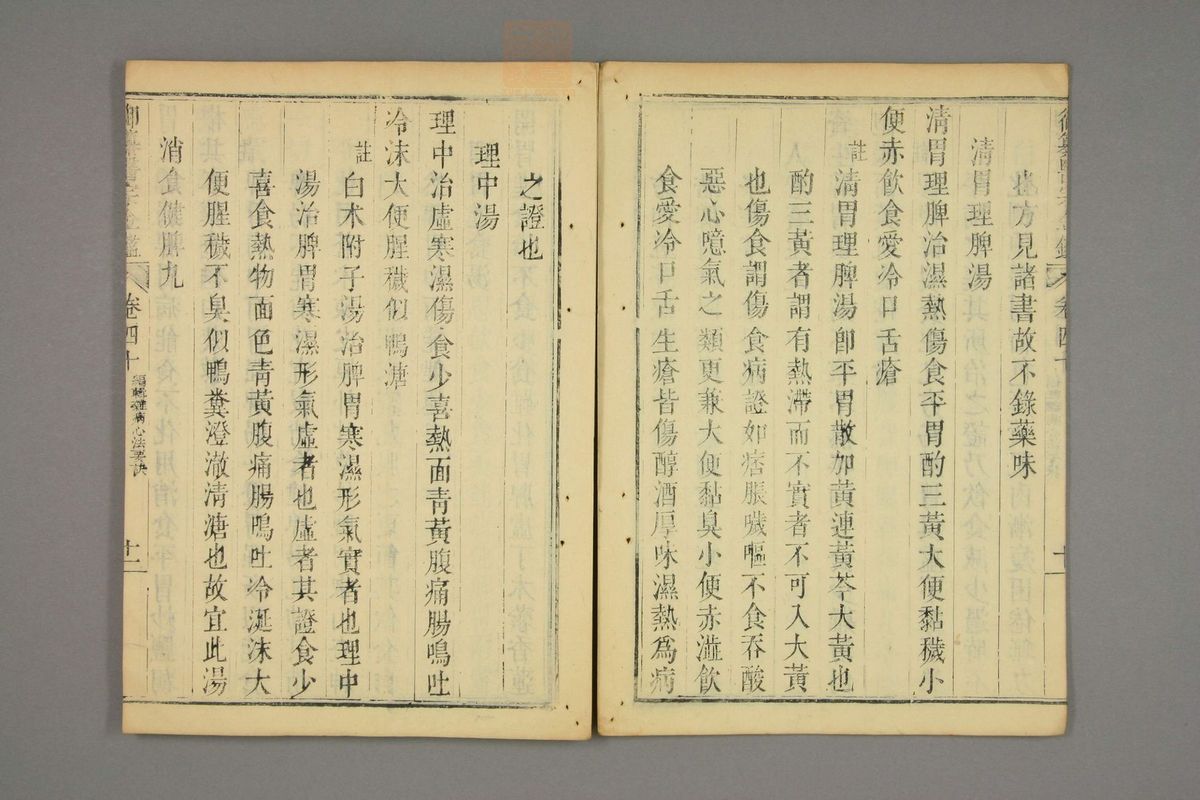 也方見諸書故不錄藥味
清胃理脾湯
清胃理脾治濕熱傷食平胃酌三黃大便黏穢小
便赤飲食愛冷口舌瘡
註
清胃理脾湯卽平胃散加黃連黃芩大黃也
酌三黃者謂有熱滯而不實者不可入大黃
也傷食謂傷食病證如痞脹噦嘔不食吞酸
惡心噫氣之類更兼大便黏臭小便赤澁飮
食愛冷口舌生瘡皆傷醇酒厚味濕熱爲病
之證也
理中湯
理中治虛寒濕傷食少喜熱面靑黃腹痛腸鳴吐
冷沫大便腥穢似鴨溏
註
白术附子湯治脾胃寒濕形氣實者也理中
湯治脾胃寒濕形氣虛者也虛者其證食少
喜食熱物面色靑黃腹痛腸鳴吐冷涎沫大
便腥穢不臭似鴨糞澄澈清溏也故宜此湯
消食健脾丸
卷四十
編輯雜病心法要訣
十一